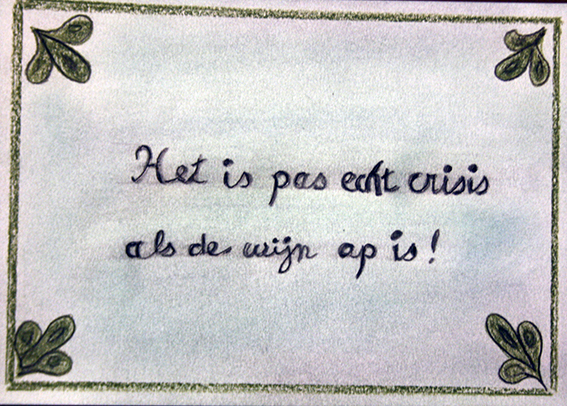 Het is pas echt crisis
als de wijn op is!